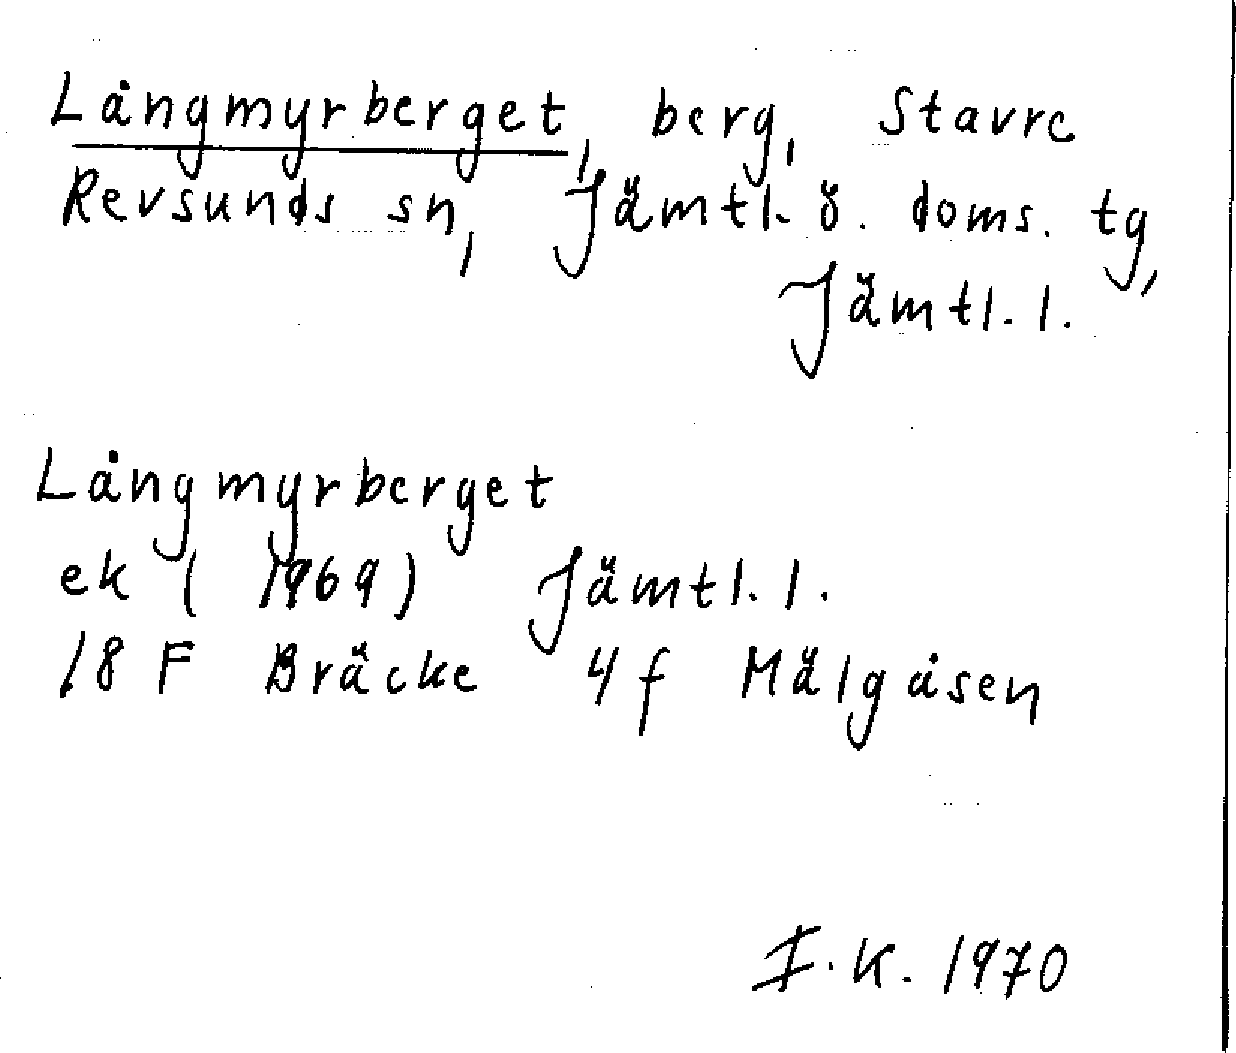 Långmyrberget, berg, Stavre
Revsunds sn, Jämtl. ö. doms. tg,
Jämtl. l.
Långmyrberget
ek ( 1969) Jämtl. l.
18 F Bräcke 4 f Mälgåsen
I. K. 1970